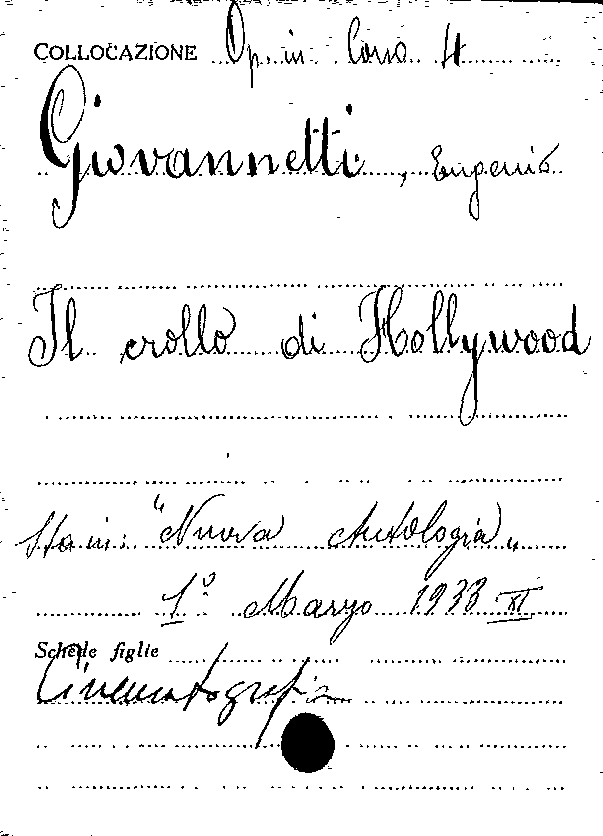 COLLOCAZIONE Op. in Corso 4
Giovannetti, Eugenio
Il crollo di Hollywood
Sta in: "Nuova Antologia"
1° Marzo 1933 XI
Schede figlie
Cinematografia